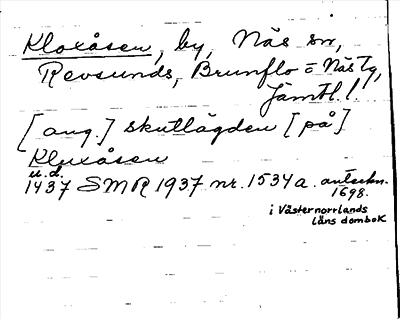 Kloxåsen, by, Näs sn,
Revsunds, Brunflo o Näs tg,
Jämtl. l.
[ang.] skutlägden [på]
Kluxåsen
u.d.
1437 SMR 1937 nr. 1534 a. anteckn.
1698.
i Västernorrlands
läns dombok